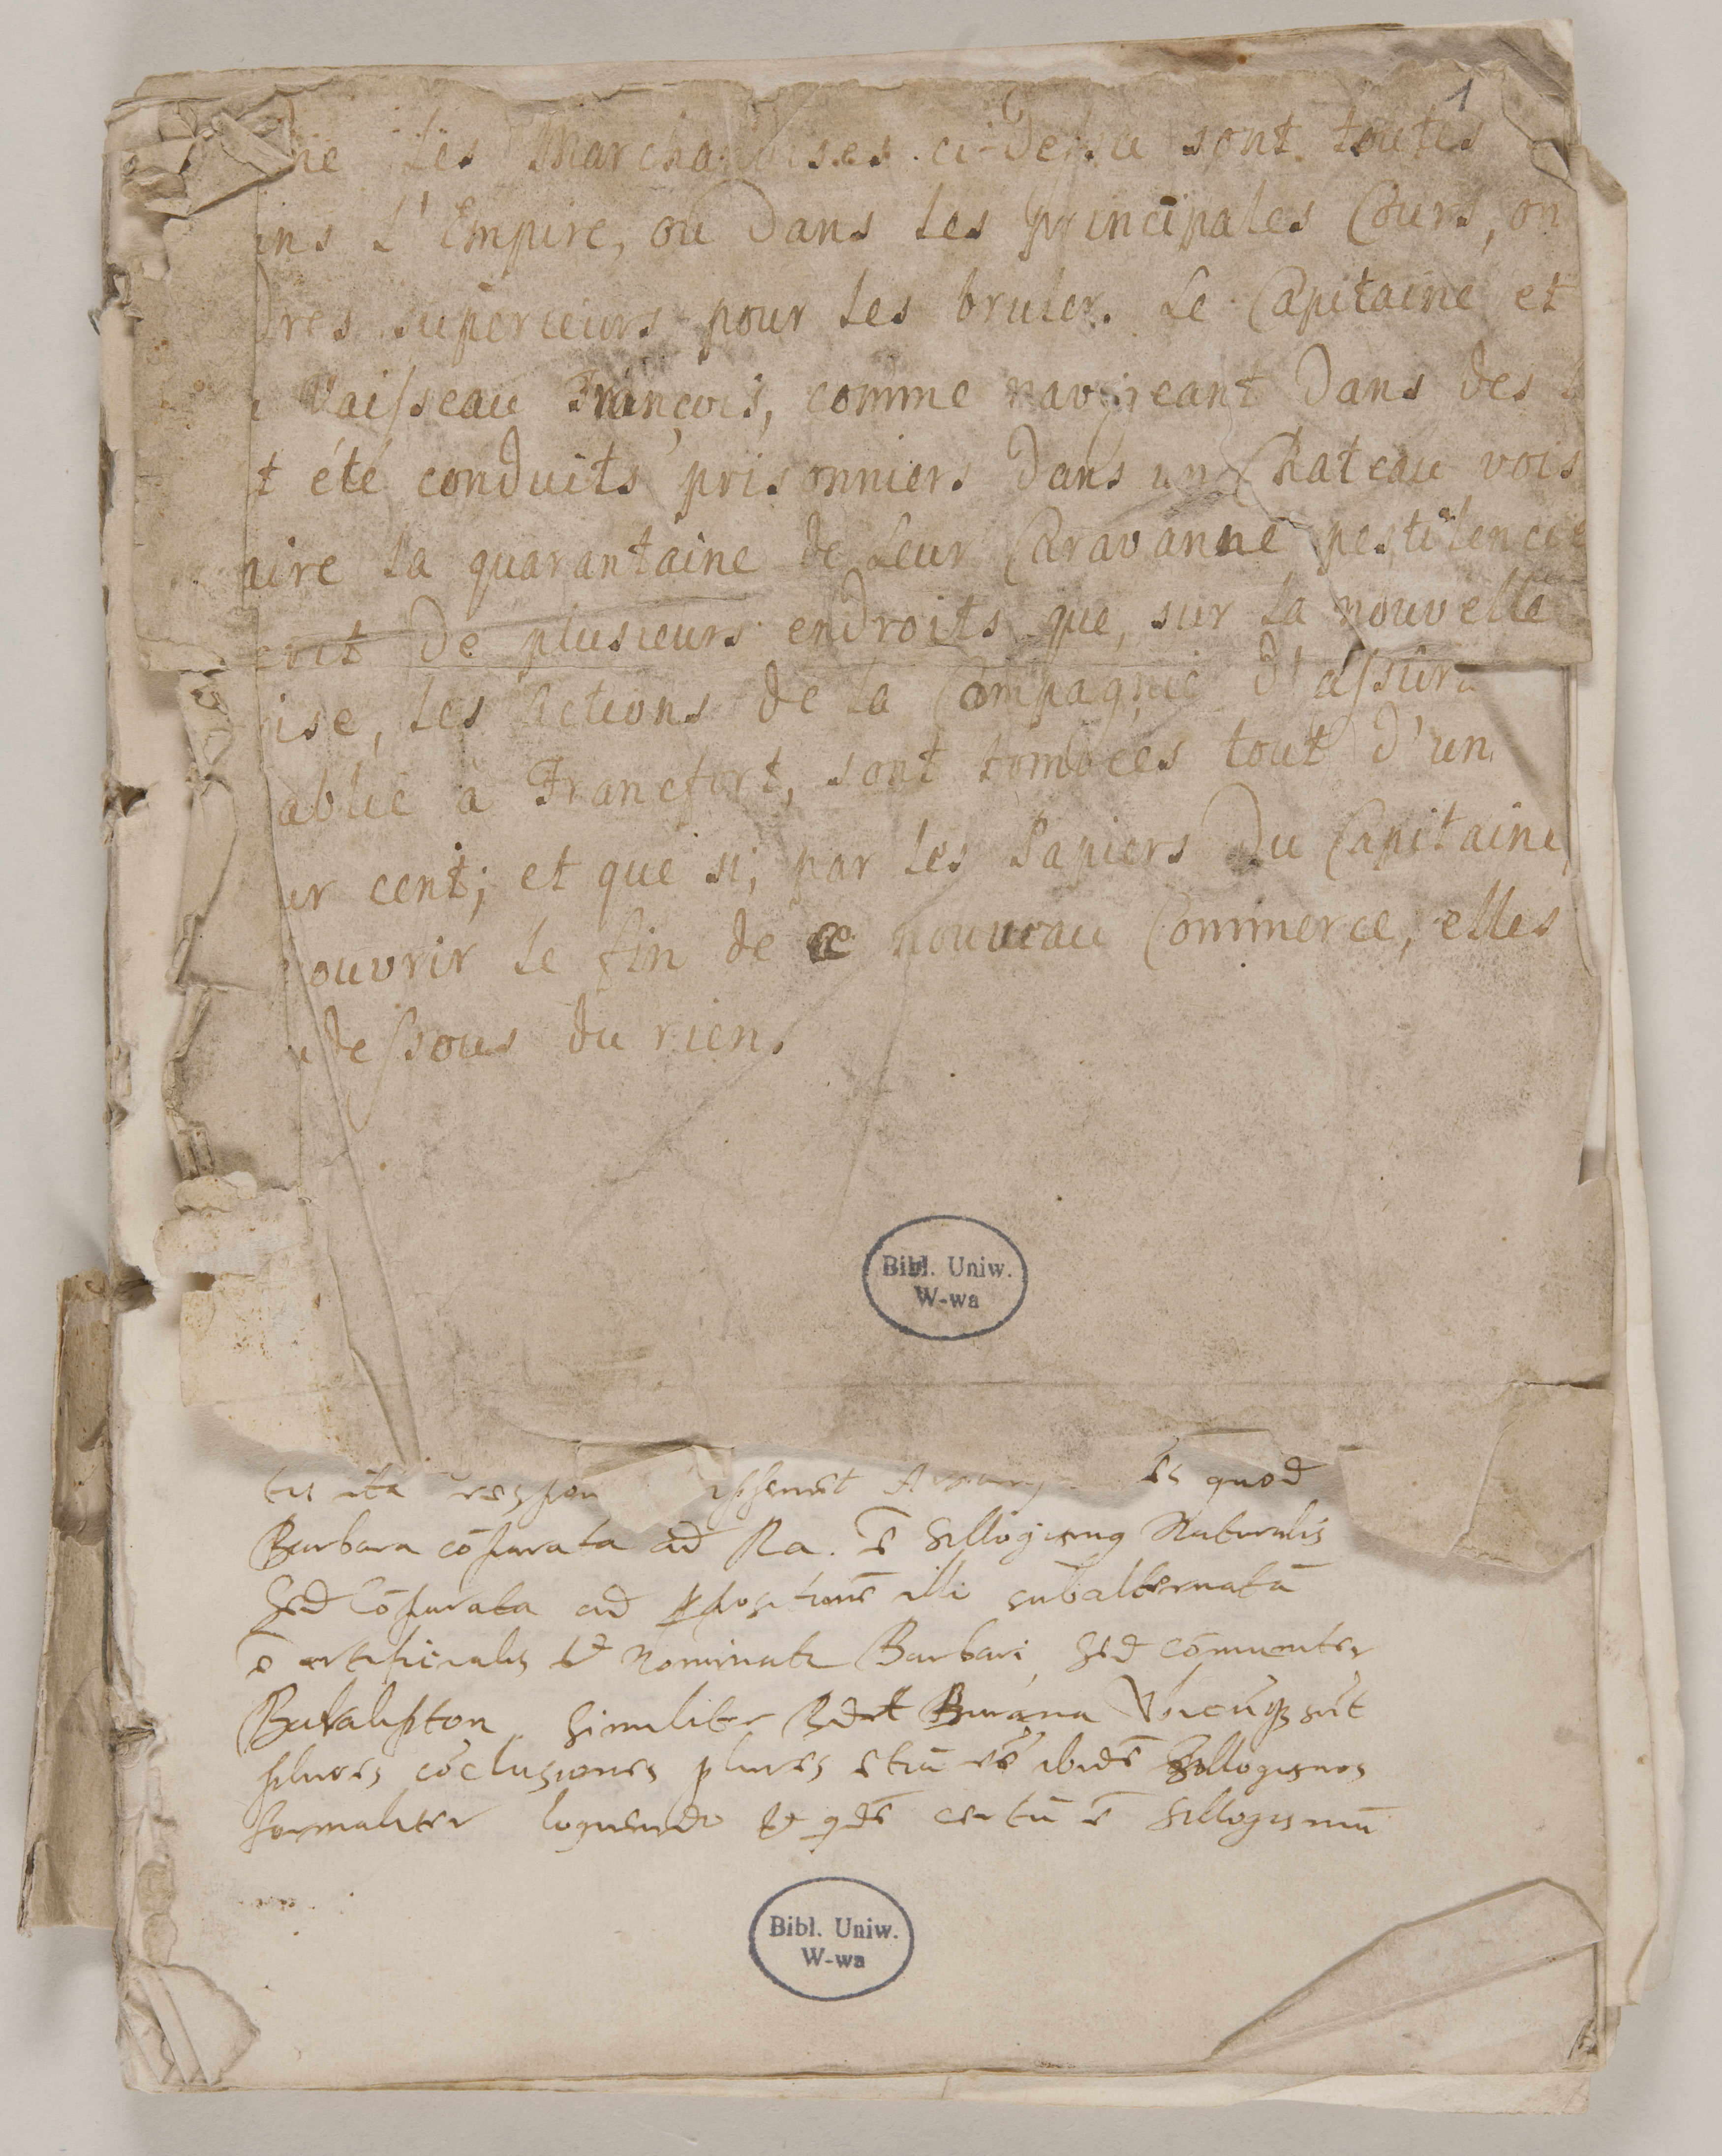 1
ne les Marchandises ci-dessu sont toutes
ns L'Empire, ou dans les principales Cours, on
dres superieurs pour les bruler. Le Capitaine et
Vaisseau François, comme navigeant dans des
t été conduits prisonniers dans un Chateau vois
aire la quarantaine de leur Caravanne pestilencie
crit de plusieurs endroits que, sur la nouvelle
ise, les Actions de la Compagnie d'assura
ablie à Francfort, sont tombées tout d'un
ur cent; et que si, par les Papiers du Capitaine,
ouvrir le fin de ce nouveau Commerce, elles
dessous du rien.
Bibl. Uniw.
W-wa
tis ita quod
Barbara cōparata ad Ra. ē Sillogismus Naturalis
Sed cōparata ad ꝓpositionē illi subalternatā
ē artificialis et Nominatur Barbari, sed cōmuniter
Baralipton Similiter
plures cōclusiones plures etiā ibidē Sillogismos
formaliter loquendo et certū ē Sillogismū
Bibl. Uniw.
W-wa